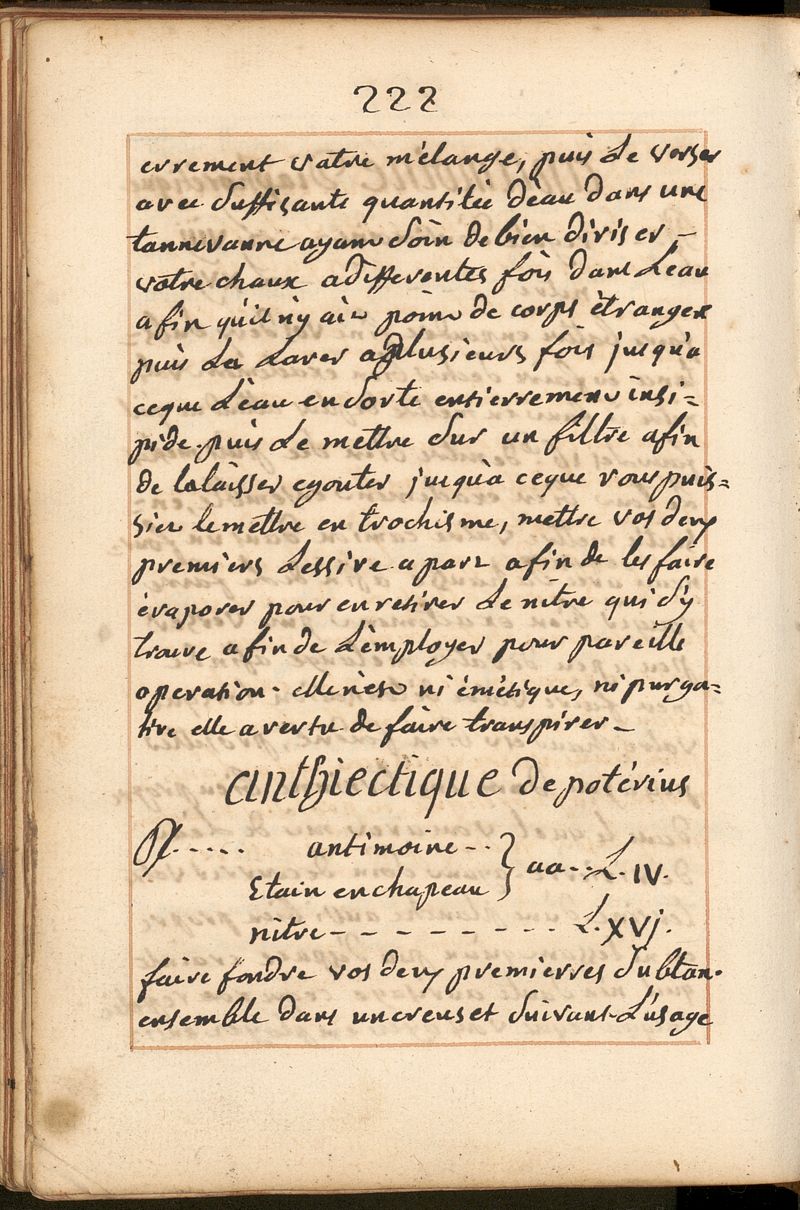 222
errement vatre mélange, puis Le verser
avec Suffisante quantitée d'eau dans une
tannevanne ayant Soin de bien diviser -
vatre chaux a differentes fois dans L'eau
afin qu'il n'y ait point de corps étranger
puis La Laver a plusieurs fois jusqu'a
ceque L'eau en Sorte entierrement insi=
pide. puis Le mettre Sur un filtre afin
de lalaisser egouter jusqu'a ceque vous puis=
siez le mettre en trochisme, mettre vos deux
premiers Lessive a part afin de les faire
évaporer pour en retirer Le nitre qui s'y
trouve afin de L'employer pour pareille
operation. elle n'est ni émétique, ni purga=
tive elle a vertu de faire transpirer -
anthiectique de potérius
℞ ..... antimoine - . } aa . . L. IV.
Etain en chapeau
nitre - - - - - - - - - L. XVj.
faire fondre vos deux premierres Subtan.
ensemble dans un creuset Suivant L'usage